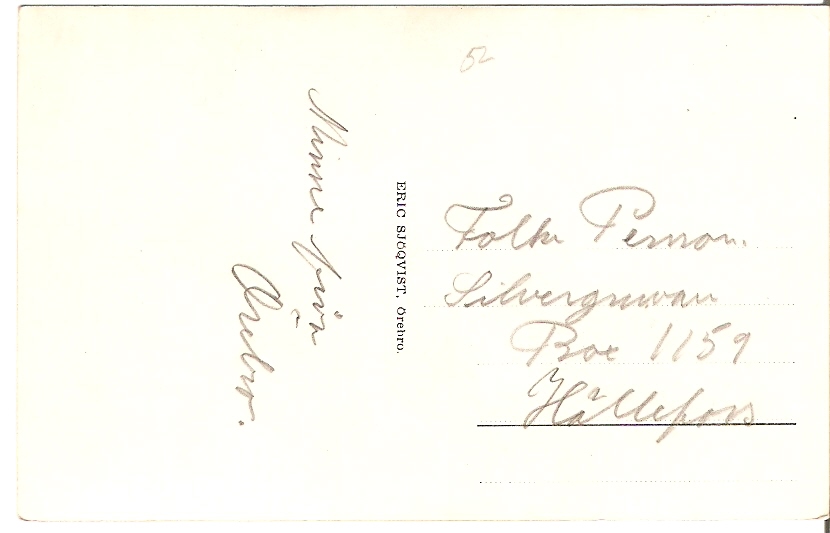 52
Minne från
Örebro.
ERIC SJÖQVIST, Örebro.
Folke Persson.
Silvergruvan
Box 1159
Hällefors